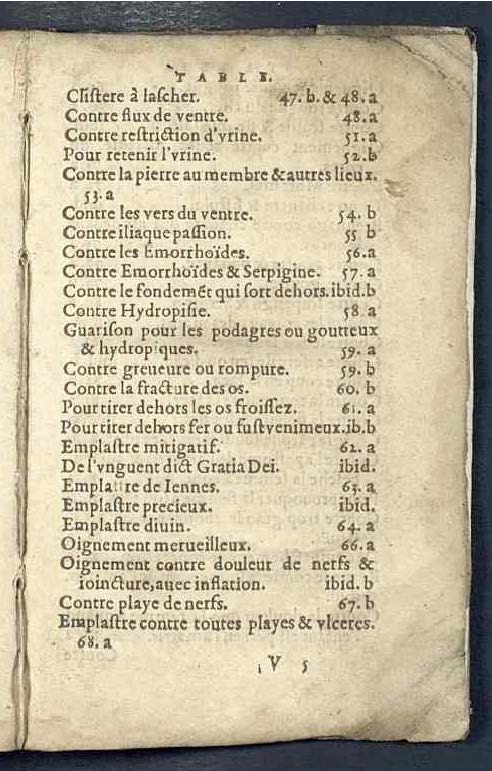 TABLE.
Cliſtere à laſcher. 47. b. & 48. a
Contre flux de ventre. 48. a
Contre reſtriction d'vrine. 51. a
Pour retenir l'vrine. 52. b
Contre la pierre au membre & autres lieux.
53. a
Contre les vers du ventre. 54. b
Contre iliaque paſſion. 55 b
Contre les Emorrhoïdes. 56. a
Contre Emorrhoïdes & Serpigine. 57. a
Contre le fondemẽt qui ſort dehors. ibid. b
Contre Hydropiſie. 58 a
Guariſon pour les podagres ou goutteux
& hydropiques. 59. a
Contre greueure ou rompure. 59. b
Contre la fracture des os. 60. b
Pour tirer dehors les os froiſſez. 61. a
Pour tirer dehors fer ou fuſt venimeux. ib. b
Emplaſtre mitigatif. 62. a
De l'vnguent dict Gratia Dei. ibid.
Emplaſtre de Iennes. 63. a
Emplaſtre precieux. ibid.
Emplaſtre diuin. 64. a
Oignement merueilleux. 66. a
Oignement contre douleur de nerfs &
ioincture, auec inflation. ibid. b
Contre playe de nerfs. 67. b
Emplaſtre contre toutes playes & vlceres.
68. a
V 5